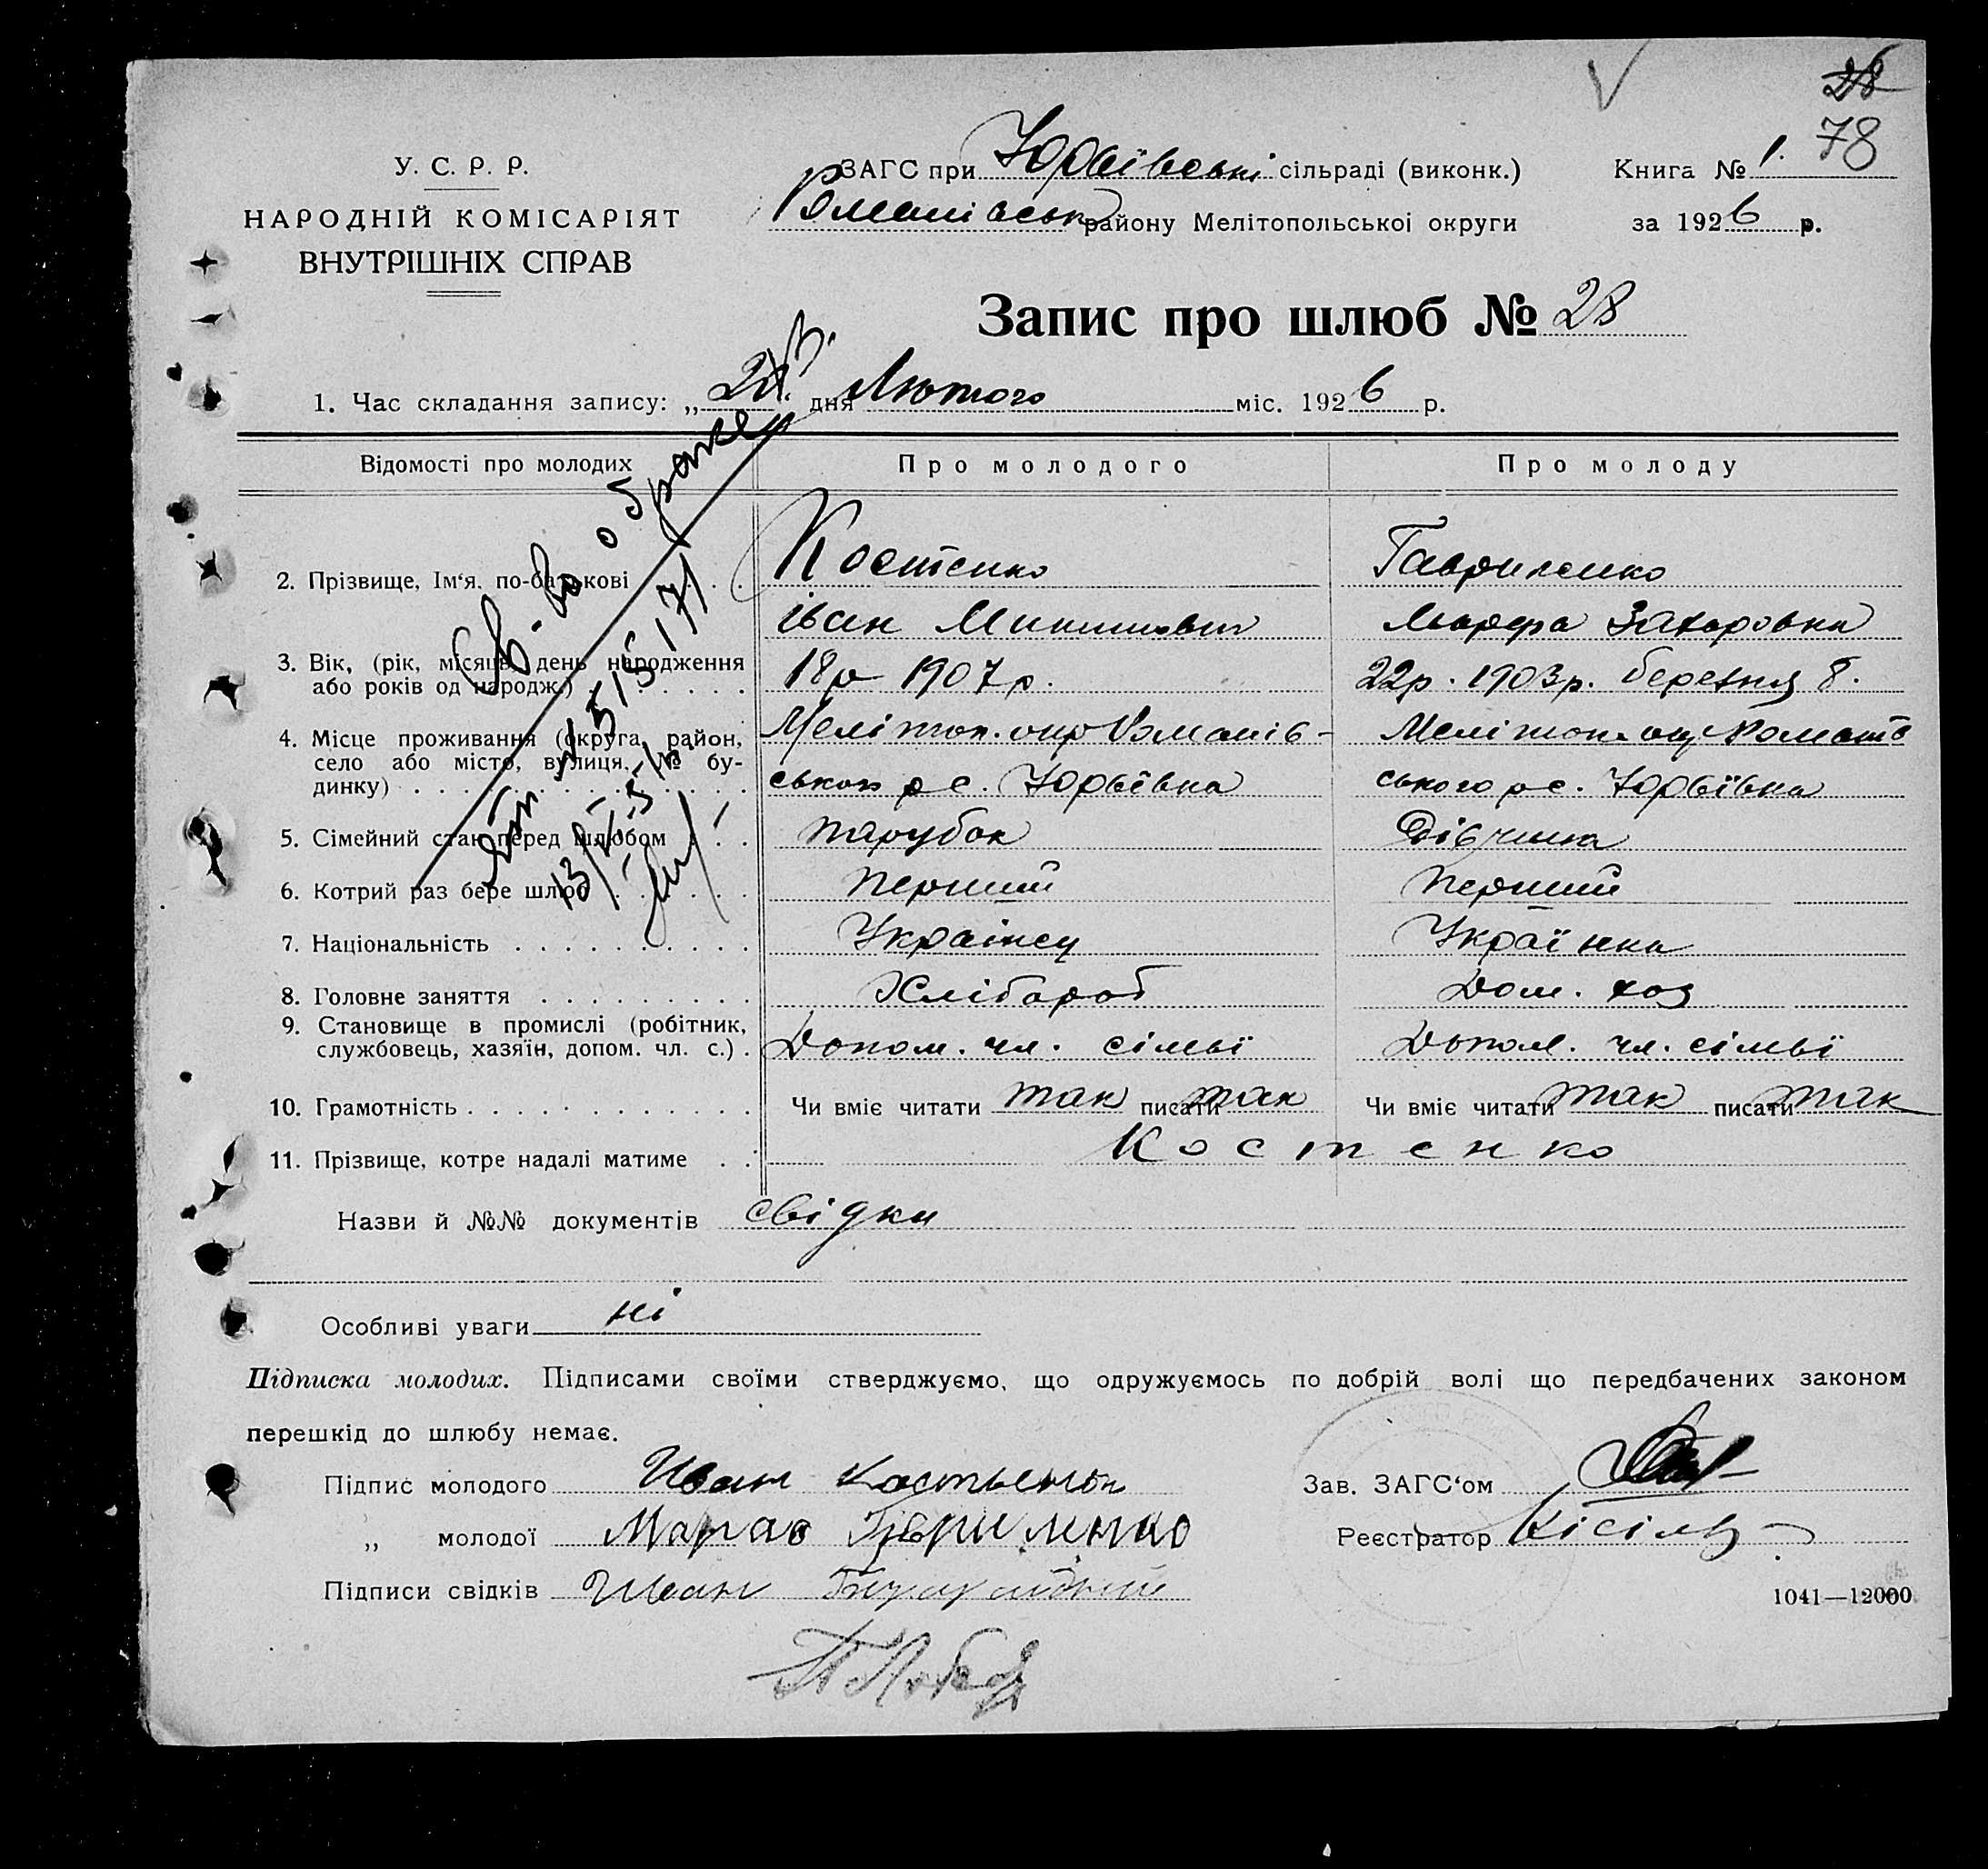 28
78
У. С. Р. Р.
НАРОДНІЙ КОМІСАРІЯТ
ВНУТРІШНІХ СПРАВ
ЗАГС при Юрьївські сільраді (виконк.)
Книга № 1.
Романівськ району Мелітопольської округи
за 1926 р.
Запис про шлюб № 28
1. Час складання запису: „ дня Лютого міс. 1926 р.
Св-во о браке
13/V-5
Відомості про молодих
Про молодого
Про молоду
2. Прізвище, Ім'я, по-батькові
Костенко
Гавриленко
іван
Марфа Захаровна
3. Вік, (рік, місяць, день народження
або років од народж.)
18р 1907 р.
22р. 1903р. березня 8.
4. Місце проживання (округа, район,
село або місто, вулиця, № бу-
динку)
Мелітоп. окр Романів-
ськоп р с. Юрьївка
Мелітоп. окр Романів
ського р с. Юрьївка
5. Сімейний стан перед шлюбом
парубок
Дівчина
6. Котрий раз бере шлюб
перший
перший
7. Національність
Українец
Українка
8. Головне заняття
Хлібороб
Дом. хоз
9. Становище в промислі (робітник,
службовець, хазяїн, допом. чл. с.)
Допом. чл. сімьї
Допом. чл. сімьї
10. Грамотність
Чи вміє читати так писати так
Чи вміє читати так писати так
11. Прізвище, котре надалі матиме
Костенко
Назви й №№ документів свідки
Особливі уваги ні
Підписка молодих. Підписами своїми стверджуємо, що одружуємось по добрій волі що передбачених законом
перешкід до шлюбу немає.
Підпис молодого Иван
Зав. ЗАГС'ом
„ молодої
Реєстратор Кісіль
Підписи свідків Иван
1041—12000